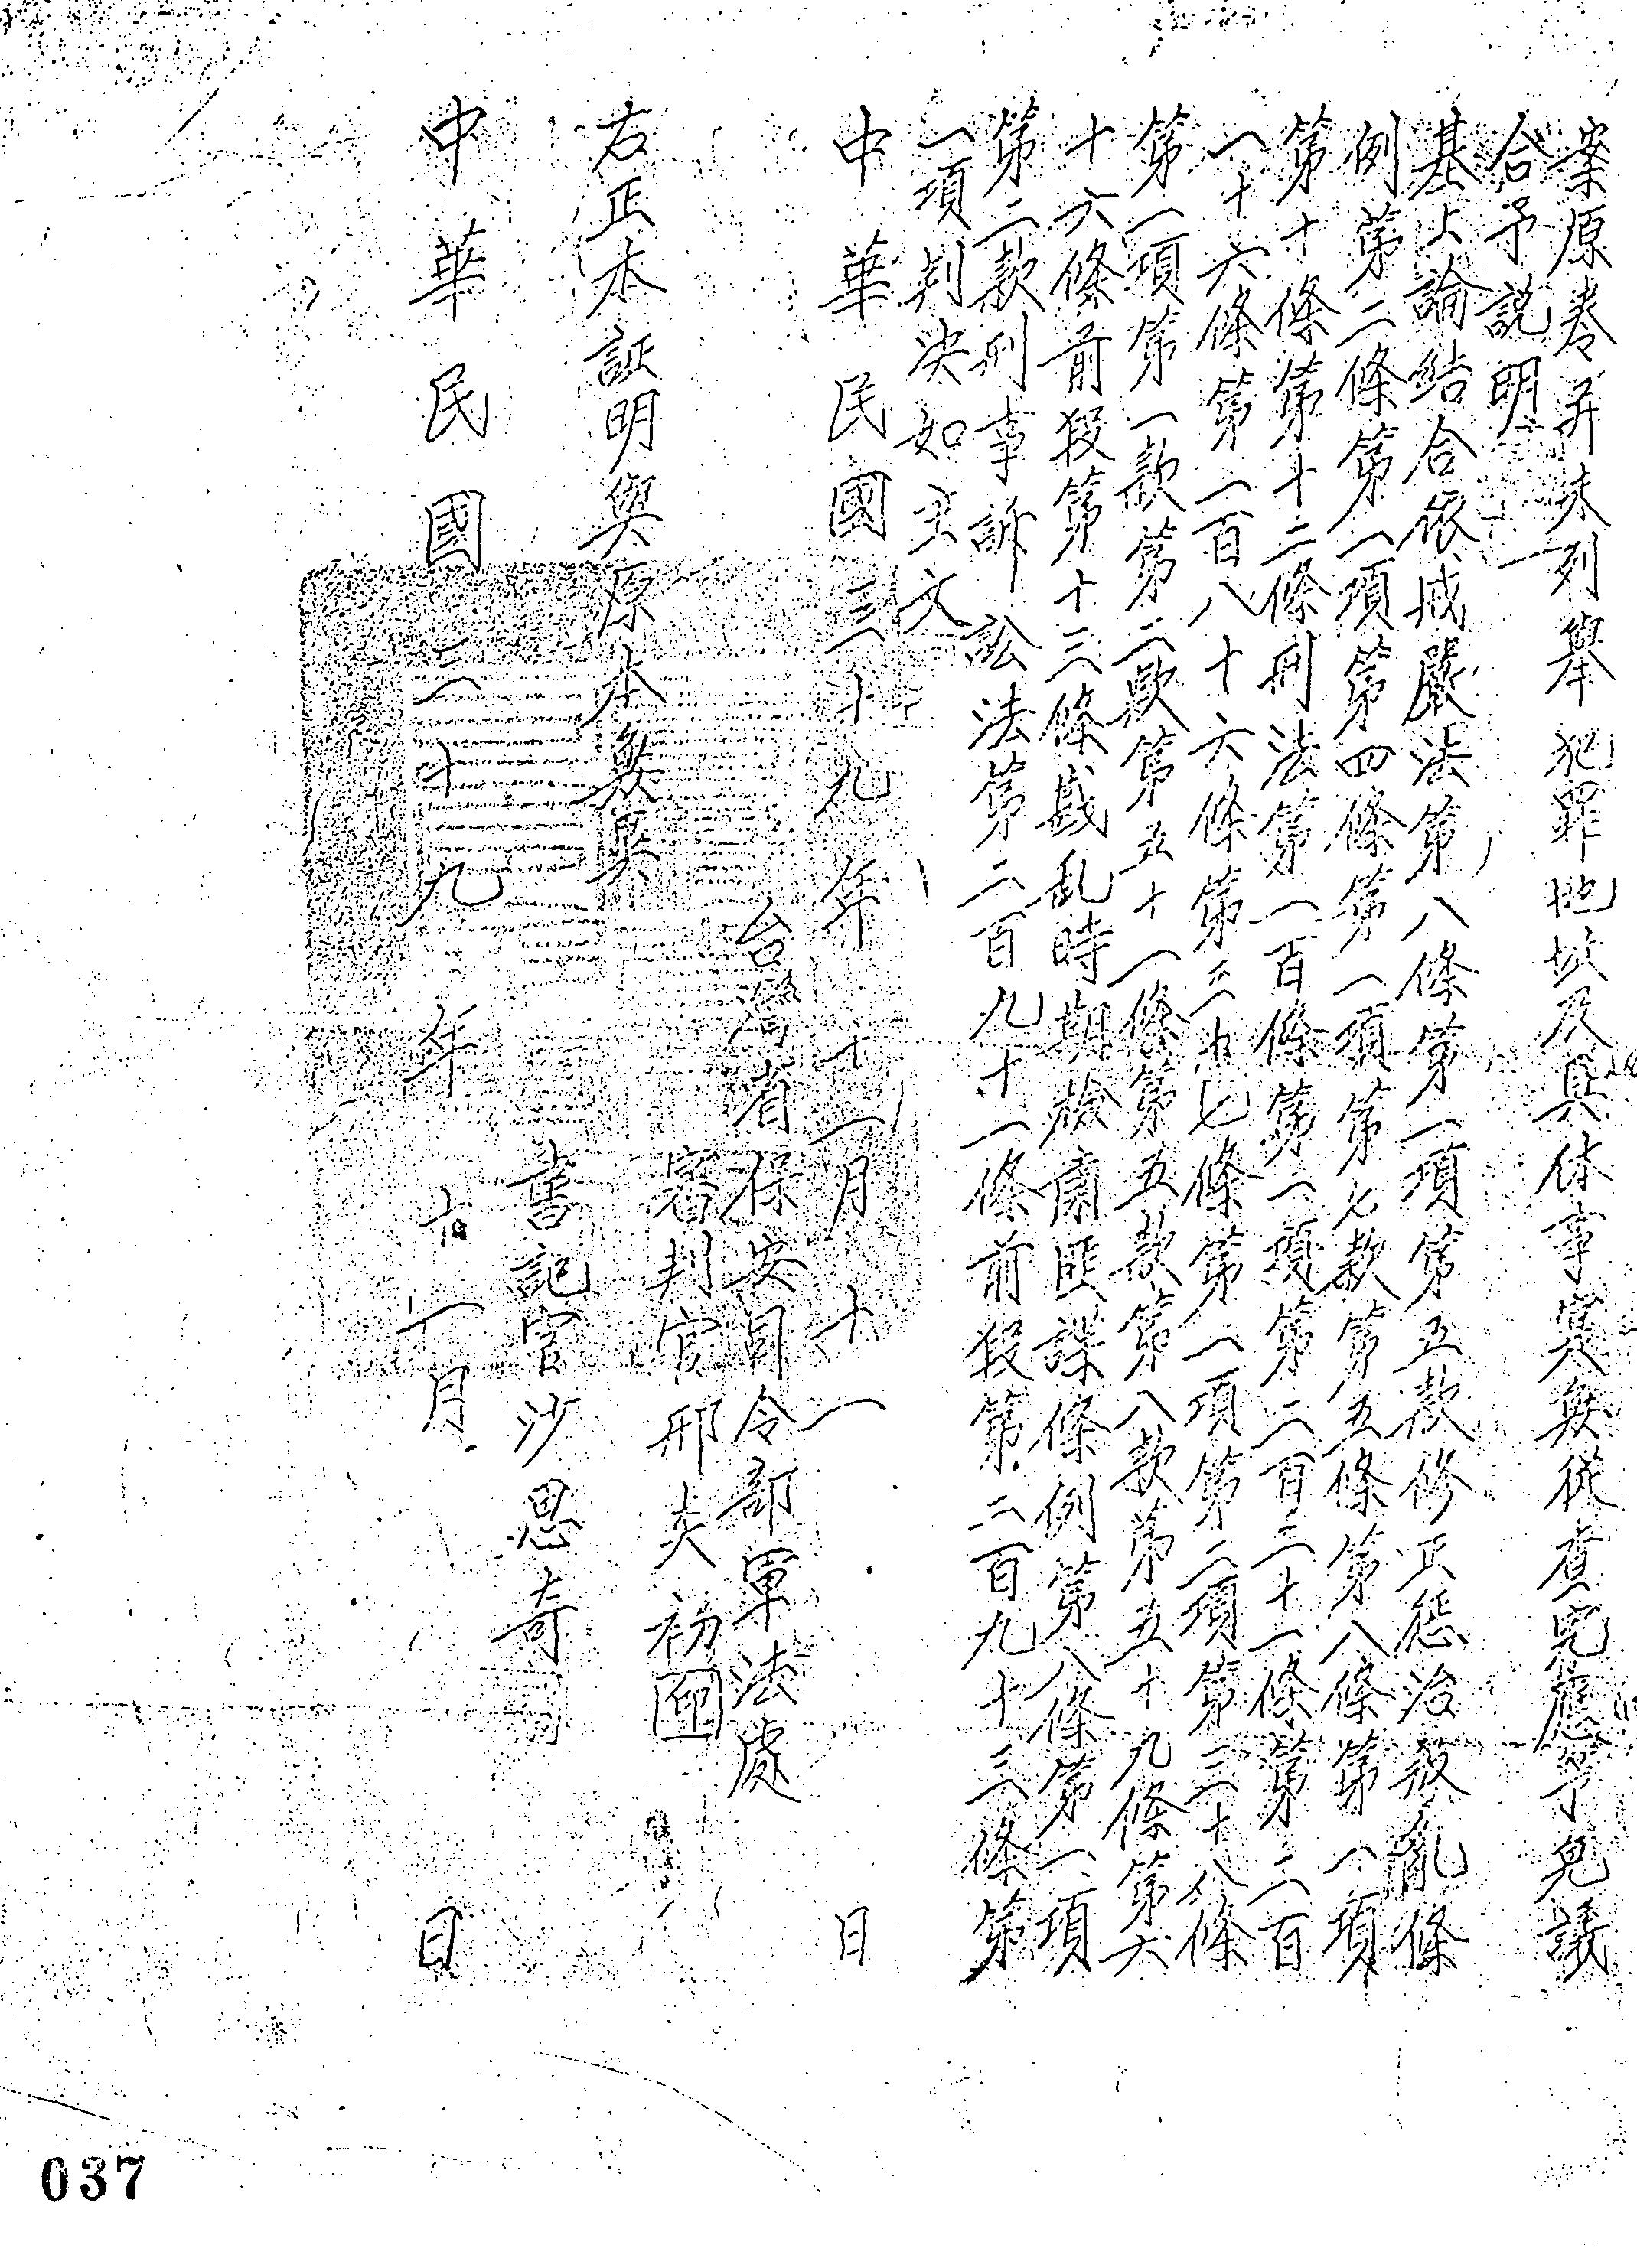 案原卷並未列舉犯罪地址及具体事實無從查究應予免議
合予說明
基上論結合依戒嚴法第八條第一項第五款修正懲治叛亂條
例第二條第一項第四條第一項第七款第五條第八條第一項
第十條第十二條刑法第一百條第一項第二百三十一條第二百
一十六條第二百八十六條第三十七條第一項第二項第三十八條
第一項第一款第二款第五十一條第五款第八款第五十九條第六
十六條前段第十三條戡乱時期檢肅匪諜條例第八條第一項
第二款刑事訴訟法第二百九十一條前段第二百九十三條第
一項判決如主文
中華民國三十九年十一月十一日
台灣省保安司令部軍法處
審判官邢炎初印
右正本証明與原本無異
書記官沙思奇
中華民國三十九年十一月 日
037